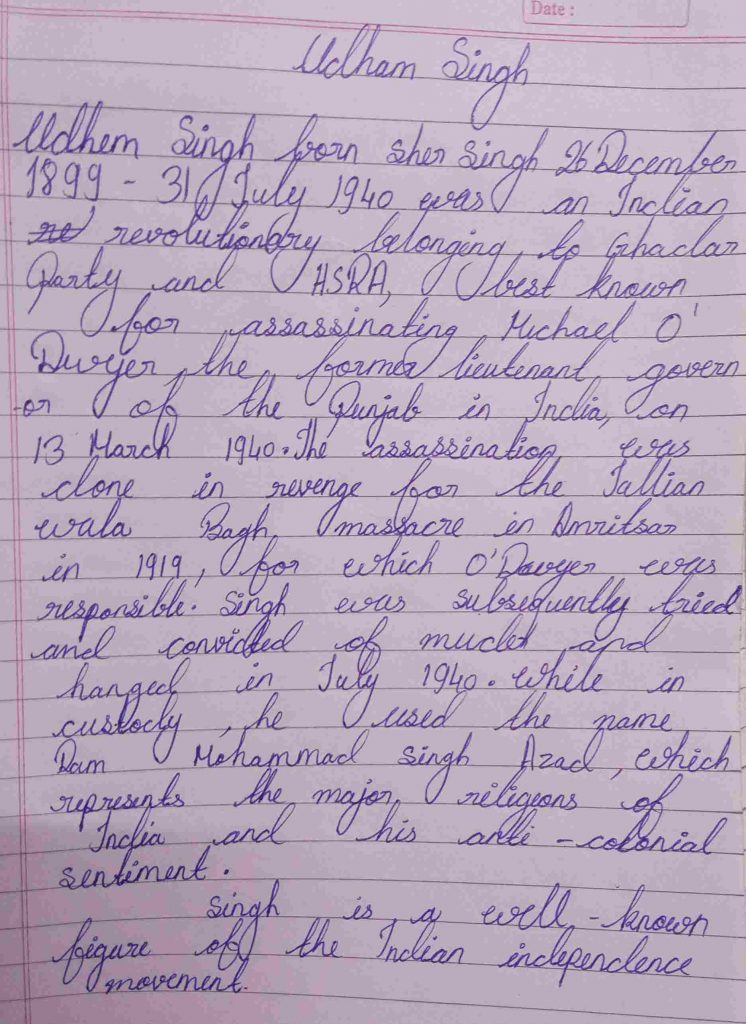 Date :
Udham Singh
Udhem Singh born Sher Singh 26 December
1899 - 31 July 1940 was an Indian
revolutionary belonging to Ghadar
Party and HSRA, best known
for assassinating Michael O'
Dwyer the former lieutenant govern
-or of the Punjab in India, on
13 March 1940. The assassination was
done in revenge for the Jallian
wala Bagh massacre in Amritsar
in 1919, for which O'Dwyer was
responsible. Singh was subsequently tried
and convicted of muder and
hanged in July 1940. While in
custody, he used the name
Ram Mohammad Singh Azad, which
represents the major religions of
India and his anti-colonial
sentiment.
Singh is a well-known
figure of the Indian independence
movement.